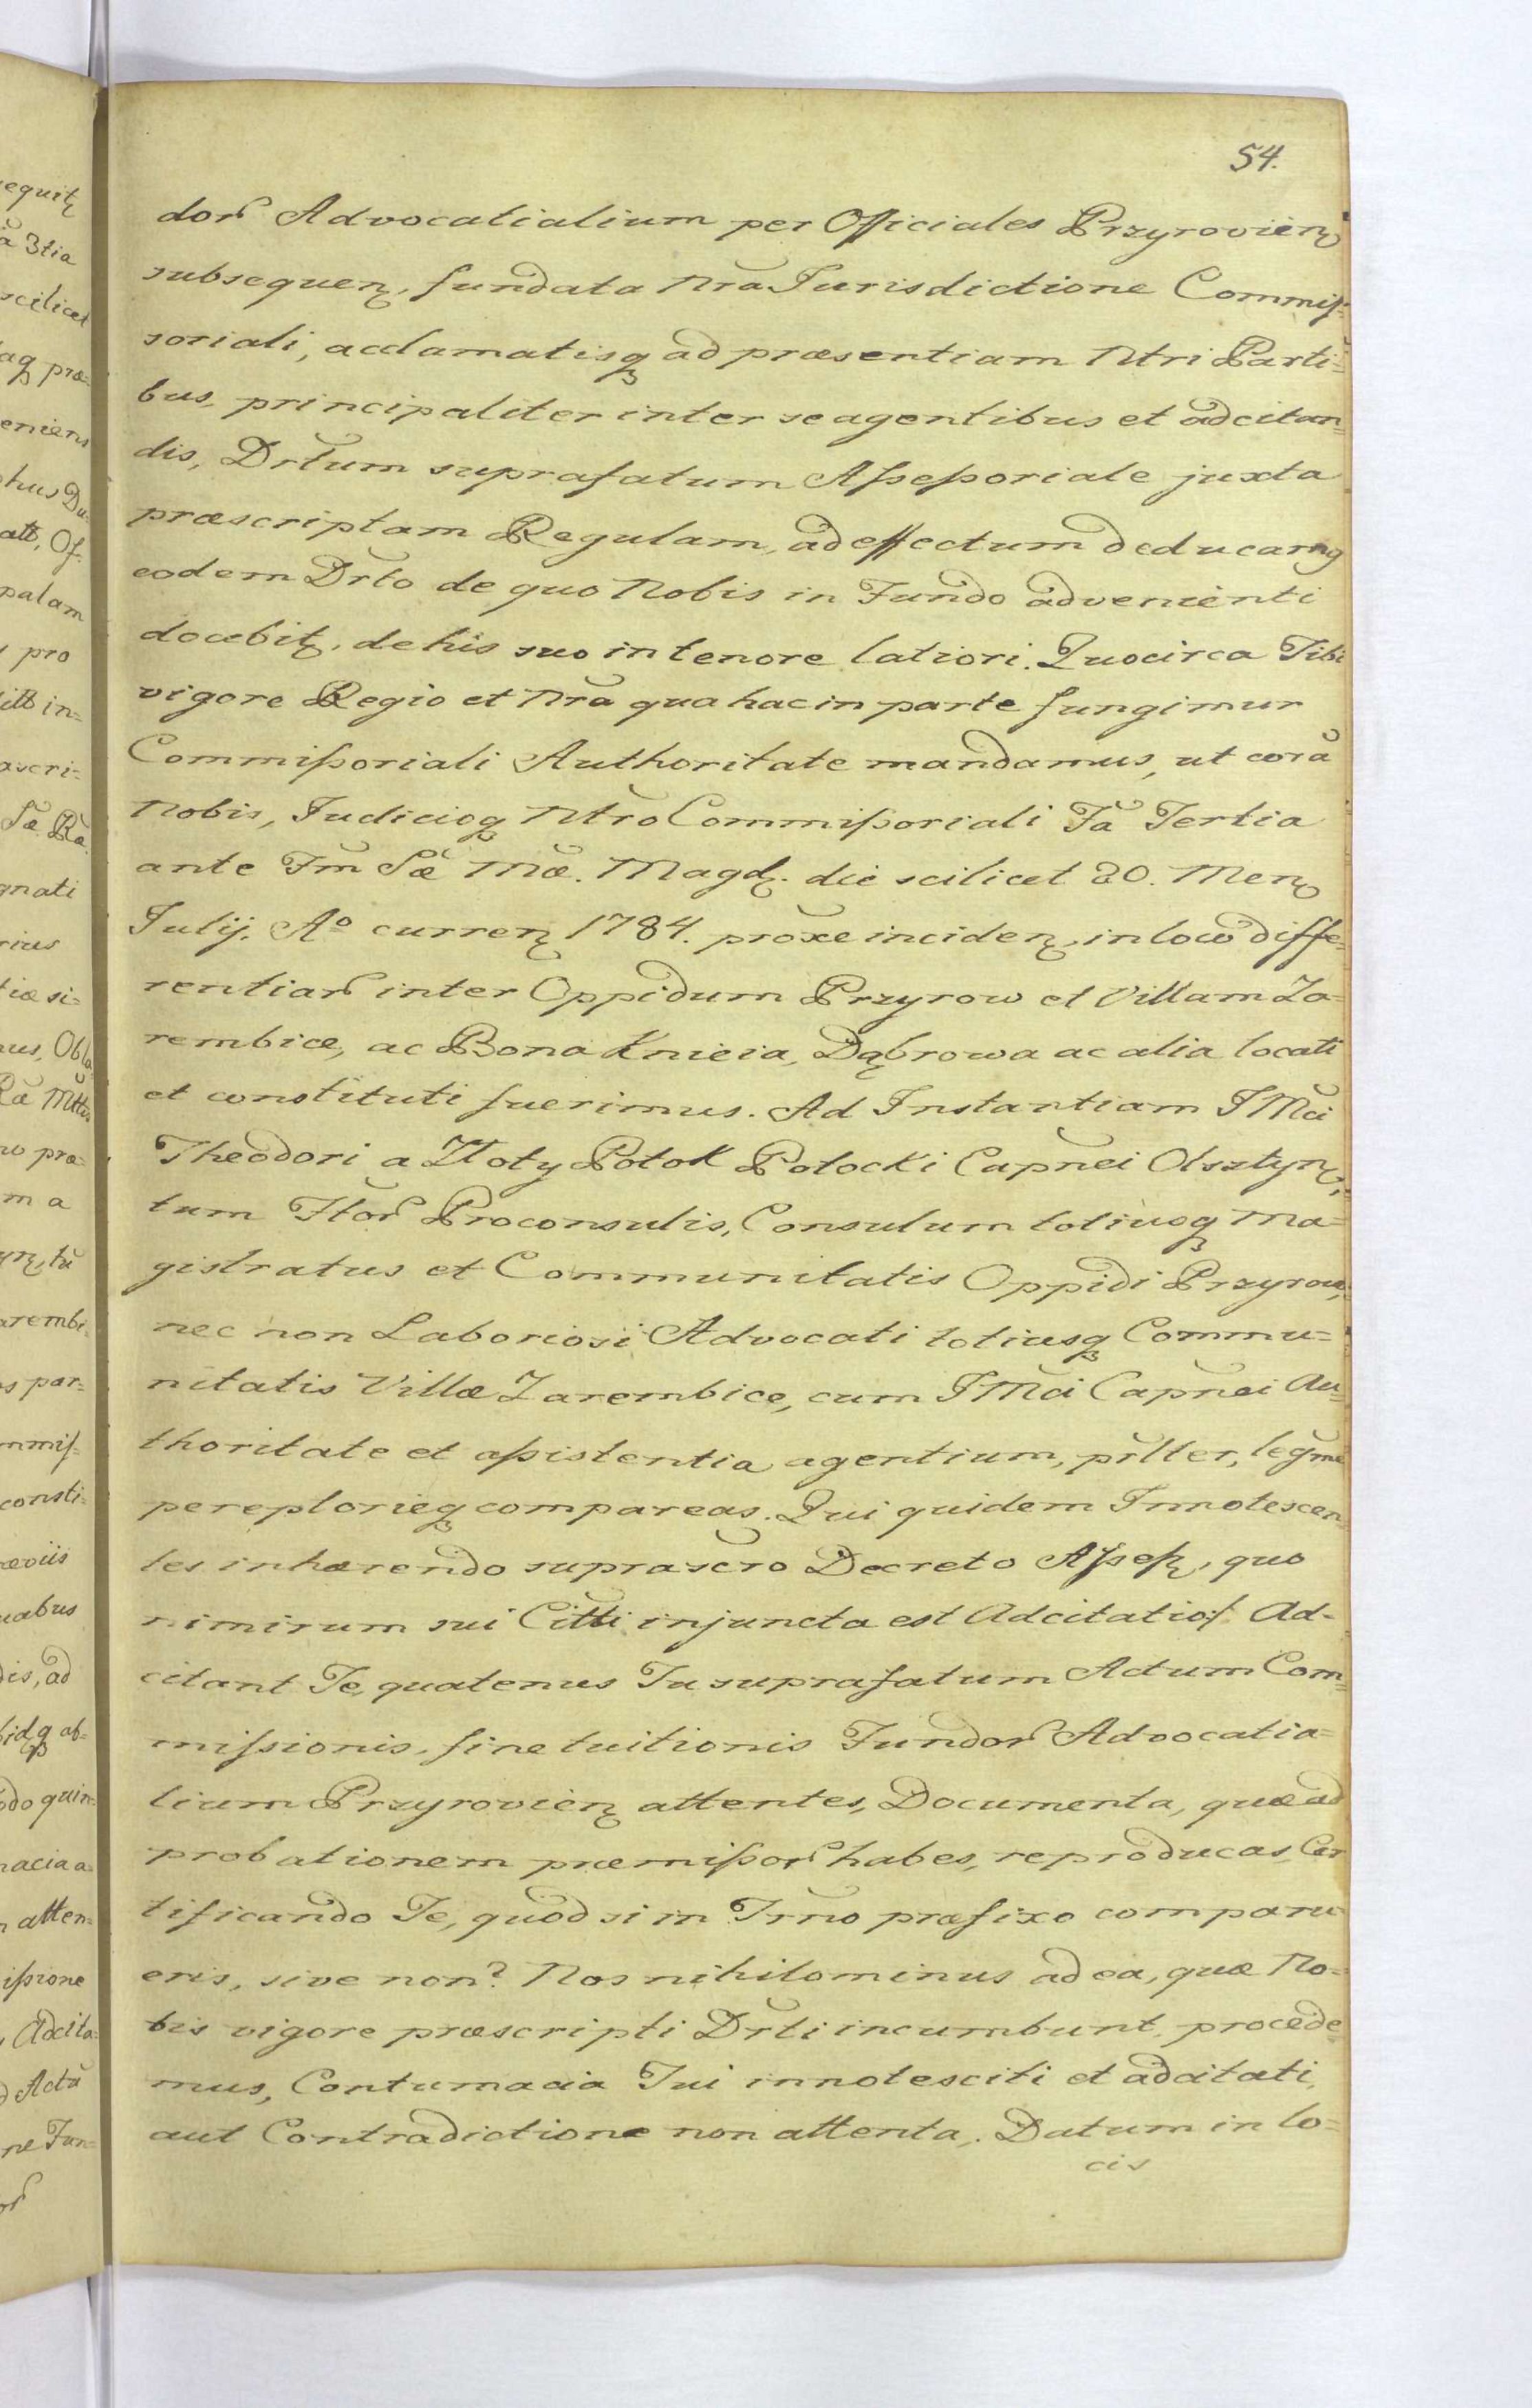 54.
dor Advocatialium per Officiales Przyrovien
subsequen, fundata Nra Jurisdictione Commis=
soriali, acclamatisq ad præsentiam Ntri Parti=
bus, principaliter inter se agentibus et adcitan=
dis, Drtum suprafatum Assessoriale juxta
præscriptam Regulam, ad effectum deducamq
eodem Drto de quo Nobis in Fundo advenienti
docebit, de his suo in tenore latiori. Quocirca Tibi
vigore Regio et Nra qua hac in parte fungimur
Commissoriali Authoritate mandamus, ut corã
Nobis, Judicioq Ntro Commissoriali Fã Tertia
ante Fm Sæ Mæ. Magd. die scilicet 20. Men
Julij. Aº curren 1784. proxe inciden, in loco diffe=
rentiar inter Oppidum Przyrow et Villam Za=
rembice, ac Bona Knieia, Dąbrowa ac alia locati
et constituti fuerimus. Ad Instantiam JMci
Theodori a Złoty Potok Potocki Capnei Olsztyn,
tum Htor Proconsulis, Consulum totiusq Ma=
gistratus et Communitatis Oppidi Przyrow,
nec non Laboriosi Advocati totiusq Commu=
nitatis Villæ Zarembice, cum JMci Capnei Au=
thoritate et assistentia agentium, prlter, legme
pereptorieq compareas. Qui quidem Innotescen
tes inhærendo suprascro Decreto Assess, quo
nimirum sui Citti injuncta est Adcitatio/. Ad-
citant Te, quatenus Tu suprafatum Actum Com=
missionis, fine tuitionis Fundor Advocatia=
lium Przyrovien attentes, Documenta, quæ ad
probationem præmissor habes, reproducas, Cer
tificando Te, quod si in Trno præfixo comparu
eris, sive non? Nos nihilominus ad ea, quæ No=
bis vigore præscripti Drti incumbunt, procede
mus, Contumacia Tui innotesciti et adcitati,
aut Contradictione non attenta. Datum in lo=
cis